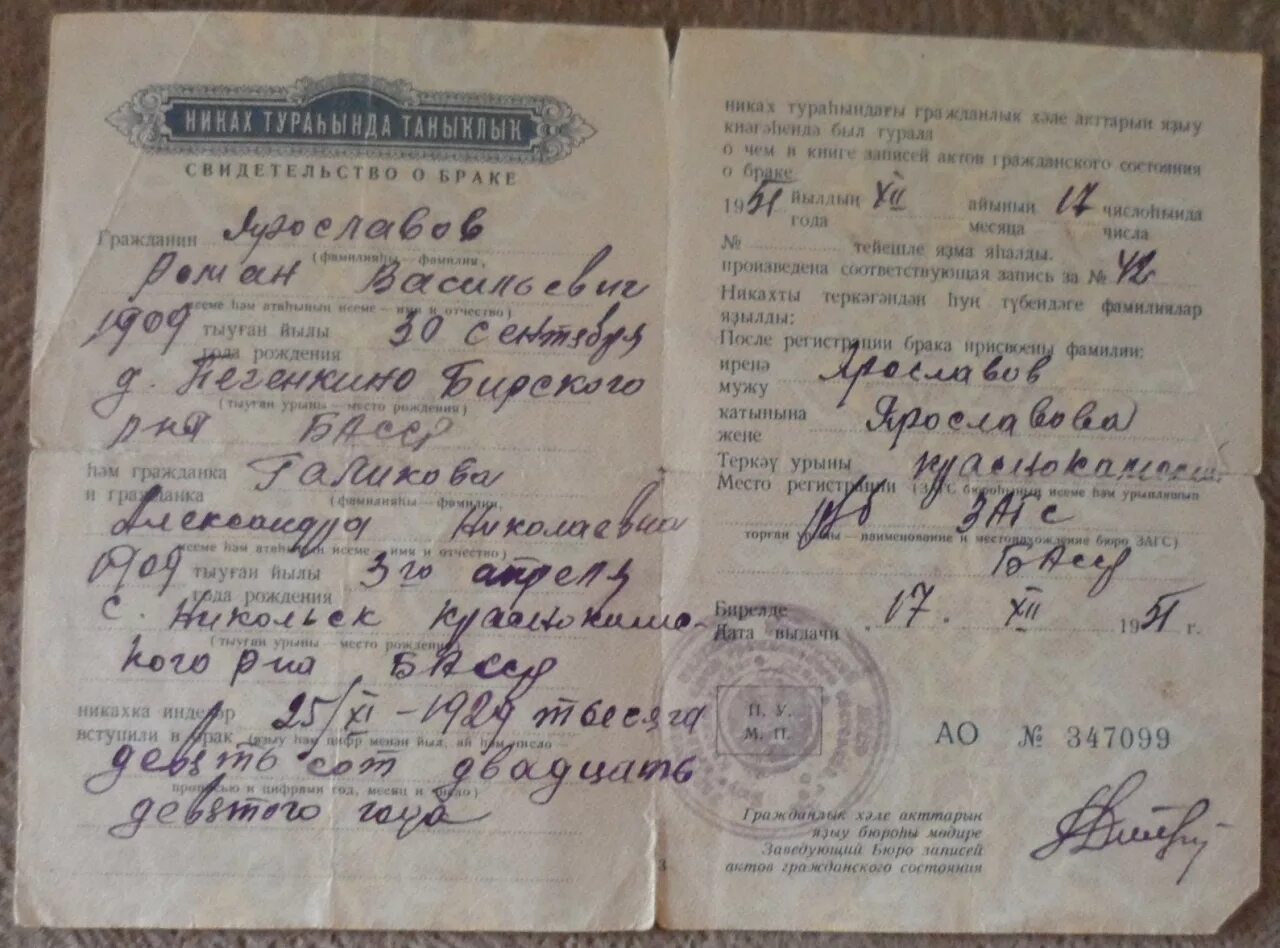 НИКАХ ТУРАҺЫНДА ТАНЫҠЛЫҠ
СВИДЕТЕЛЬСТВО О БРАКЕ
Гражданин Ярославов
(фамилияһы – фамилия,
Роман Васильевич
исеме һәм атаһының исеме – имя и отчество)
1909 тыуған йылы 30 сентября
года рождения
д. Бирского
(тыуған урыны – место рождения)
р-на БАССР
һәм гражданка Галикова
и гражданка
(фамилияһы – фамилия,
Александра Николаевна
исеме һәм атаһының исеме – имя и отчество)
1909 тыуған йылы 3го апреля
года рождения
с. Никольск Краснокамс-
(тыуған урыны – место рождения)
кого р-на БАССР
никахҡа инделәр 25/XI – 1929 тысяга
вступили в брак (яҙыу һәм цифр менән йыл, ай һәм число –
девять сот двадцать
прописью и цифрами год, месяц и число)
девятого года
никах тураһындағы гражданлыҡ хәле акттарын яҙыу
кнәгәһендә был турала
о чем в книге записей актов гражданского состояния
о браке
1951 йылдың XII айының 17 числоһында
года месяца числа
№ тейешле яҙма яһалды.
произведена соответствующая запись за № 42
Никахты теркәгәндән һуң түбәндәге фамилиялар
яҙылды:
После регистрации брака присвоены фамилии:
иренә
мужу Ярославов
ҡатынына
жене Ярославова
Теркәү урыны
Место регистрации (ЗАГС бюроһының исеме һәм урынлашып
ЗАГС
торған урыны – наименование и местонахождение бюро ЗАГС)
БАССР
Бирелде
Дата выдачи 17. XII 1951 г.
П. У.
М. П.
АО № 347099
Гражданлыҡ хәле акттарын
яҙыу бюроһы мөдире
Заведующий Бюро записей
актов гражданского состояния
3